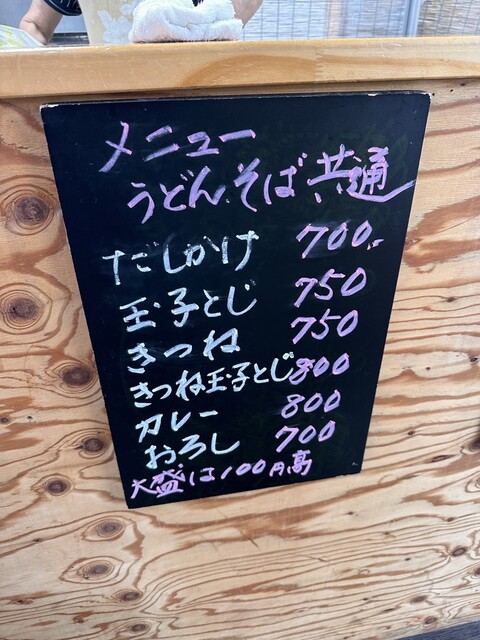 メニュー
うどん.そば 共通
だしかけ 700.-
玉子とじ 750
きつね 750
きつね玉子とじ 800
カレー 800
おろし 700
大盛は100円高